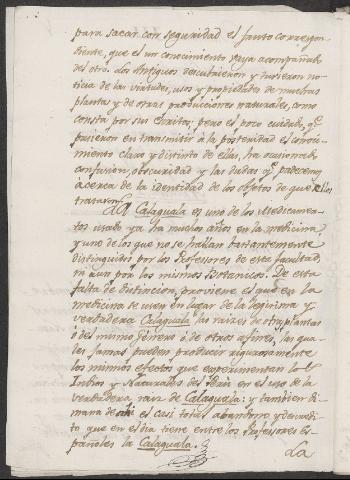 para sacar con seguridad el fruto correspon-
diente, que es un conocimiento vaya acompañado
del otro. Los Antiguos descubrieron y tuvieron no-
ticia de las virtudes, usos y propiedades de muchas
plantas y de otras producciones naturales, como
consta por sus Escritos; pero el poco cuidado, qᵉ
pusieron en transmitir à la posteridad el conoci-
miento claro y distinto de ellas, ha ocasionado
confusion, obscuridad y las dudas qᵉ padecemos
à cerca de la identidad de los objetos de que ellos
trataron.
La Calaguala es uno de los Medicamen-
tos usado ya ha muchos años en la medicina,
y uno de los que no se hallan bastantemente
distinguidos por los Profesores de esta facultad,
ni aun por los mismos Botanicos. De esta
falta de distincion, proviene el que en la
medicina se usen en lugar de la legitima y
verdadera Calaguala las raizes de otras plantas
ò del mismo genero ò de otros afines, las qua-
les jamas pueden producir rigurosamente
los mismos efectos que experimentan los
Indios y Naturales del Perù en el uso de la
verdadera raiz de Calaguala: y tambien di-
mana de ahi el casi total abandono y descredi-
to que en el dia tiene entre los Profesores Es-
pañoles la Calaguala.
La